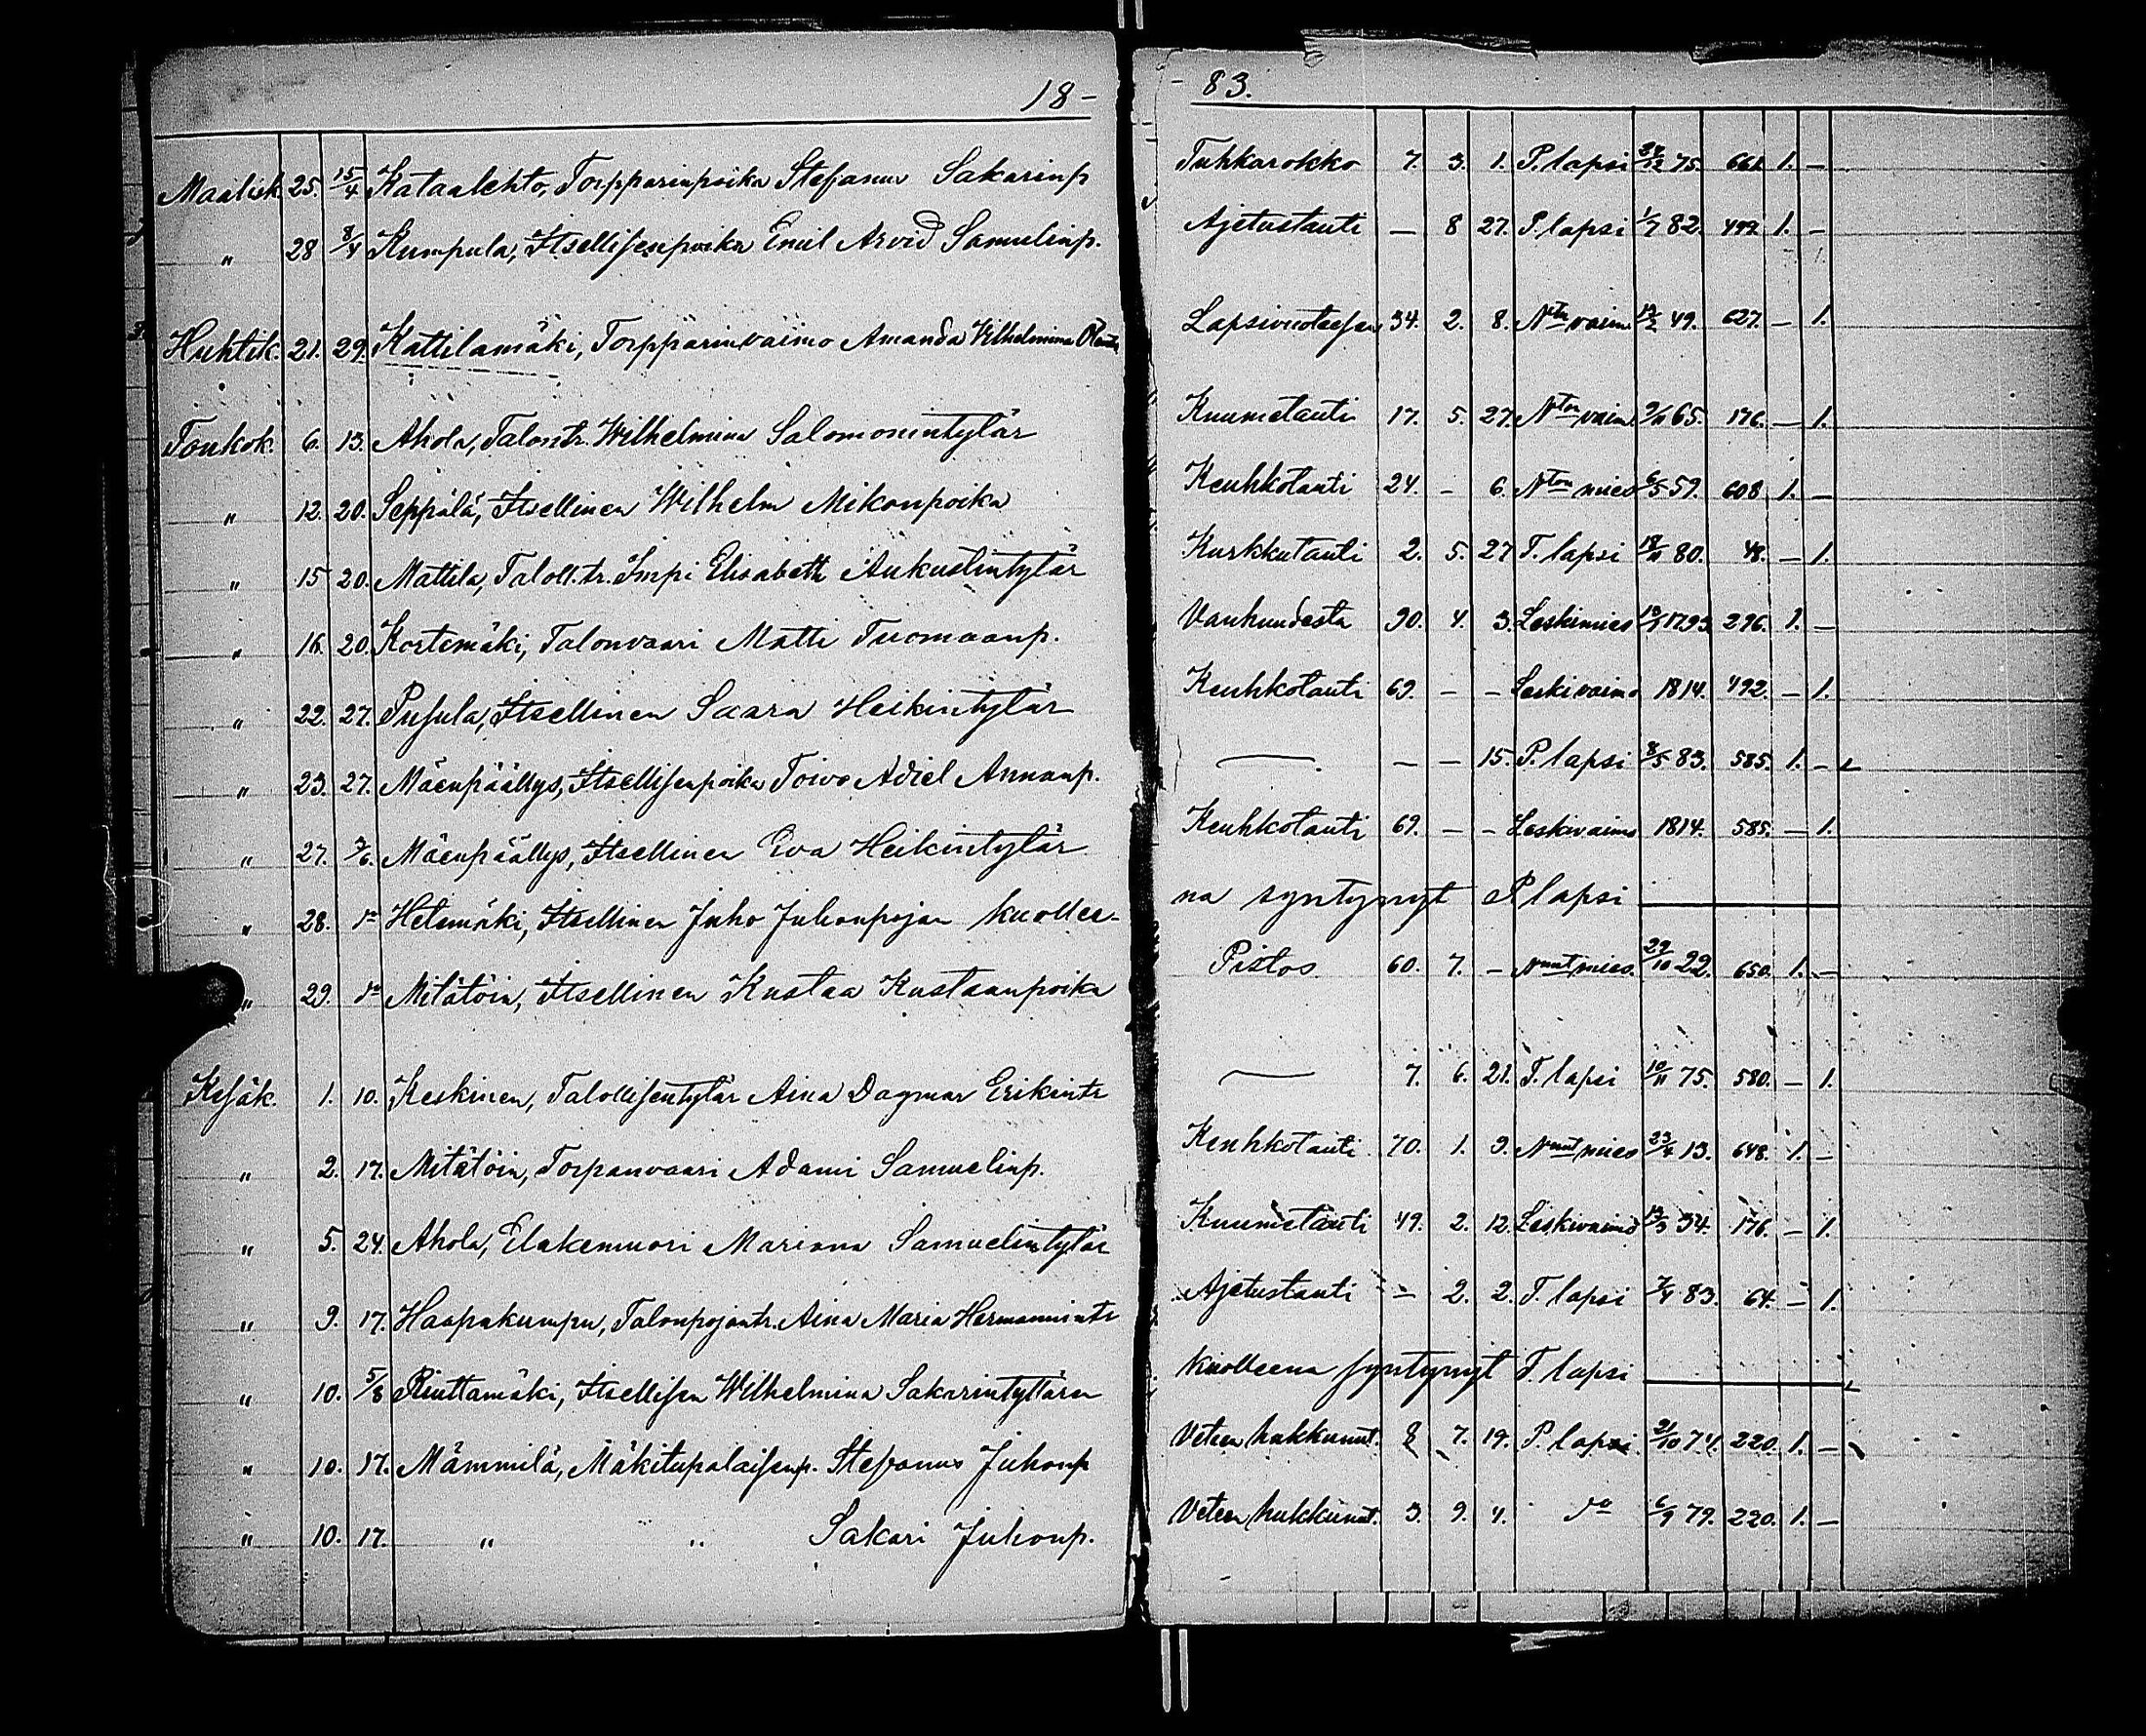 18 - - 83.
Maalisk. 25. 15/4 Kataalehto, Torpparinpoika Stefanus Sakarinp Tuhkarokko 7. 3. 1. P. lapsi 24/12 75. 661. 1. —
" 28 8/4 Kumpula, Itsellisenpoika Emil Arvid Samulinp. Ajetustauti — 8 27. P. lapsi 1/7 82. 499. 1. —
Huhtik. 21. 29. Kattilamäki, Torpparinvaimo Amanda Wilhelmina Lapsivuoteesen 34. 2. 8. Ntu vaim. 13/2 49. 627. — 1.
Toukok. 6. 13. Ahola, Talontr. Wilhelmina Salomonintytär Kuumetauti 17. 5. 27. Nton vaim. 9/11 65. 176. — 1.
" 12. 20. Seppälä, Itsellinen Wilhelm Mikonpoika Keuhkotauti 24. - 6. Nton mies 6/5 59. 608 1. —
" 15 20. Mattila, Taloll.tr. Impi Elisabeth Aukustintytär Kurkkutauti 2. 5. 27 T. lapsi 18/11 80. 48. — 1.
" 16. 20. Kortemäki, Talonvaari Matti Tuomaanp. Vanhuudesta 90. 4. 3. Leskimies 13/1 1793. 296. 1. —
" 22. 27. Pusula, Itsellinen Saara Heikintytär Keuhkotauti 69. - - Leskivaimo 1814. 492. — 1.
" 23. 27. Mäenpäällys, Itsellisenpoika Toivo Adiel Annanp. — — — 15. P. lapsi 8/5 83. 585. 1. —
" 27. 3/6. Mäenpäällys, Itsellinen Eva Heikintytär Keuhkotauti 69. — - Leskivaimo 1814. 585. — 1.
" 28. do Helemäki, Itsellinen Juho Juhonpojan kuollee- na syntynyt P lapsi —
" 29. do Mitätöin, Itsellinen Kustaa Kustaanpoika Pistos 60. 7. - Nnut mies. 29/10 22. 650. 1. —
Kesäk. 1. 10. Keskinen, Talollisentytär Aina Dagmar Erikintr — 7. 6. 21. T. lapsi 10/11 75. 580. — 1.
" 2. 17. Mitätöin, Torpanvaari Adami Samuelinp. Keuhkotauti 70. 1. 9. Nnut mies 23/4 13. 648. 1. —
" 5. 24. Ahola, Eläkemuori Mariana Samuelintytär Kuumetauti 49. 2. 12. Leskivaimo 13/3 34. 176. — 1.
" 9. 17. Haapakumpu, Talonpojantr. Aina Maria Hermannintr Ajetustauti — 2. 2. T. lapsi 7/4 83. 64. — 1.
" 10. 5/8 Riuttamäki, Itsellisen Wilhelmina Sakarintyttären kuolleena syntynyt T. lapsi —
" 10. 17. Mämmilä, Mäkitupalaisenp. Stefanus Juhonp Veteen hukkunut. 8 7. 19. P. lapsi 21/10 74. 220. 1. —
" 10. 17. " " Sakari Juhonp. Veteen hukkunut. 3. 9. 4. do 6/9 79. 220. 1. —